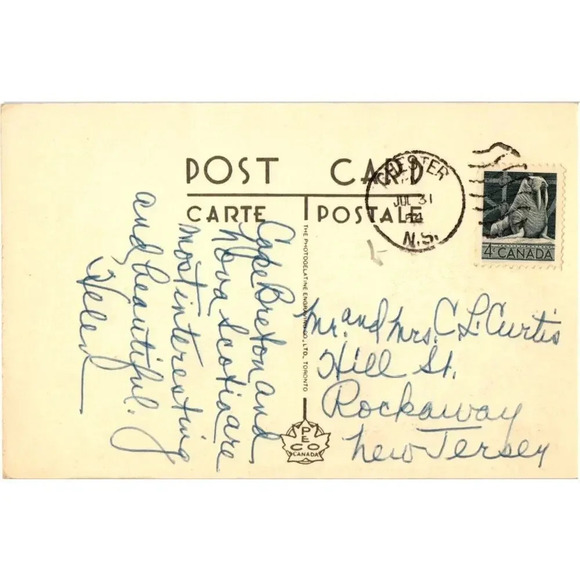 POST CARD
CARTE POSTALE
CHESTER
JUL 31
N.S.
4¢ CANADA
Cape Breton and
Nova Scotia are
most interesting
and beautiful.
Helen
THE PHOTOGELATINE ENGRAVING CO., LTD., TORONTO
PECO
CANADA
Mr. and Mrs. C. L. Curtis
Hill St.
Rockaway
New Jersey